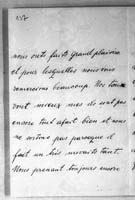 257
nous ont faits grand plaisirs
et pour lesquelles nous vous
remercions beaucoup. Nos tan
dont mieux mes de sont pas
encore tout afait bien et nous
ne sortons pas parseque il
fait un bis mouvais tant.
Nous prenant toujours encore